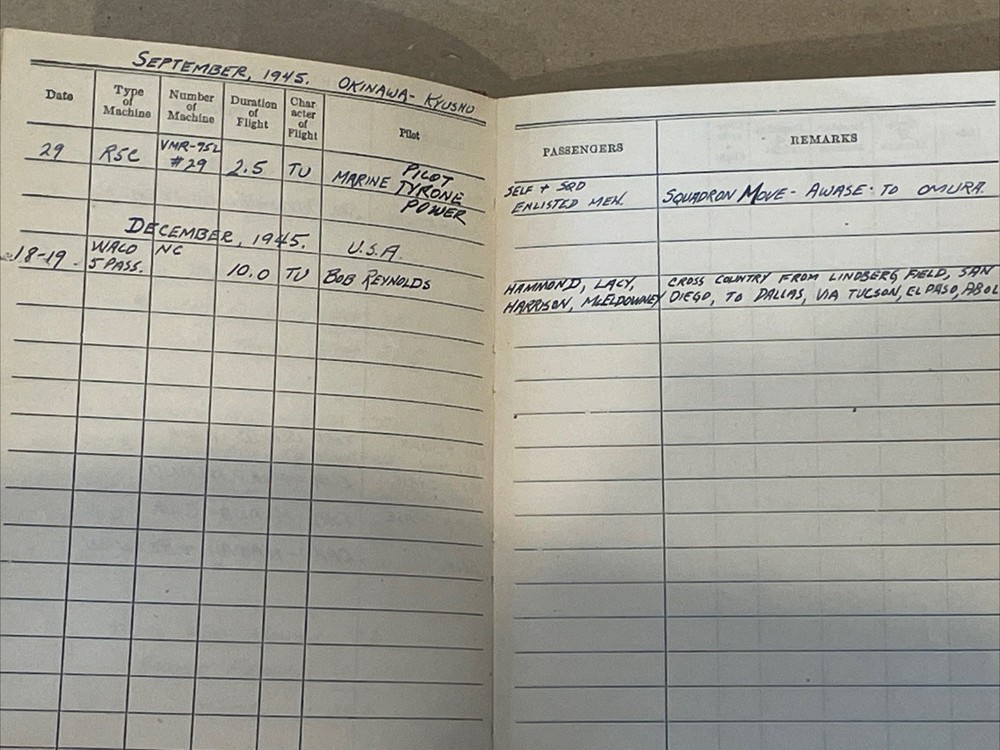 SEPTEMBER, 1945. OKINAWA- KYUSHU
Date Type of Machine Number of Machine Duration of Flight Character of Flight Pilot PASSENGERS REMARKS
29 R5C VMR-952 #29 2.5 TU MARINE PILOT TYRONE POWER SELF + SQD ENLISTED MEN. SQUADRON MOVE - AWASE · TO OMURA.
DECEMBER, 1945. U.S.A.
18-19 WACO 5 PASS. NC 10.0 TU BOB REYNOLDS HAMMOND, LACY, HARRISON, McELDOWNEY CROSS COUNTRY FROM LINDBERG FIELD, SAN DIEGO, TO DALLAS, VIA TUCSON, EL PASO, ABOL